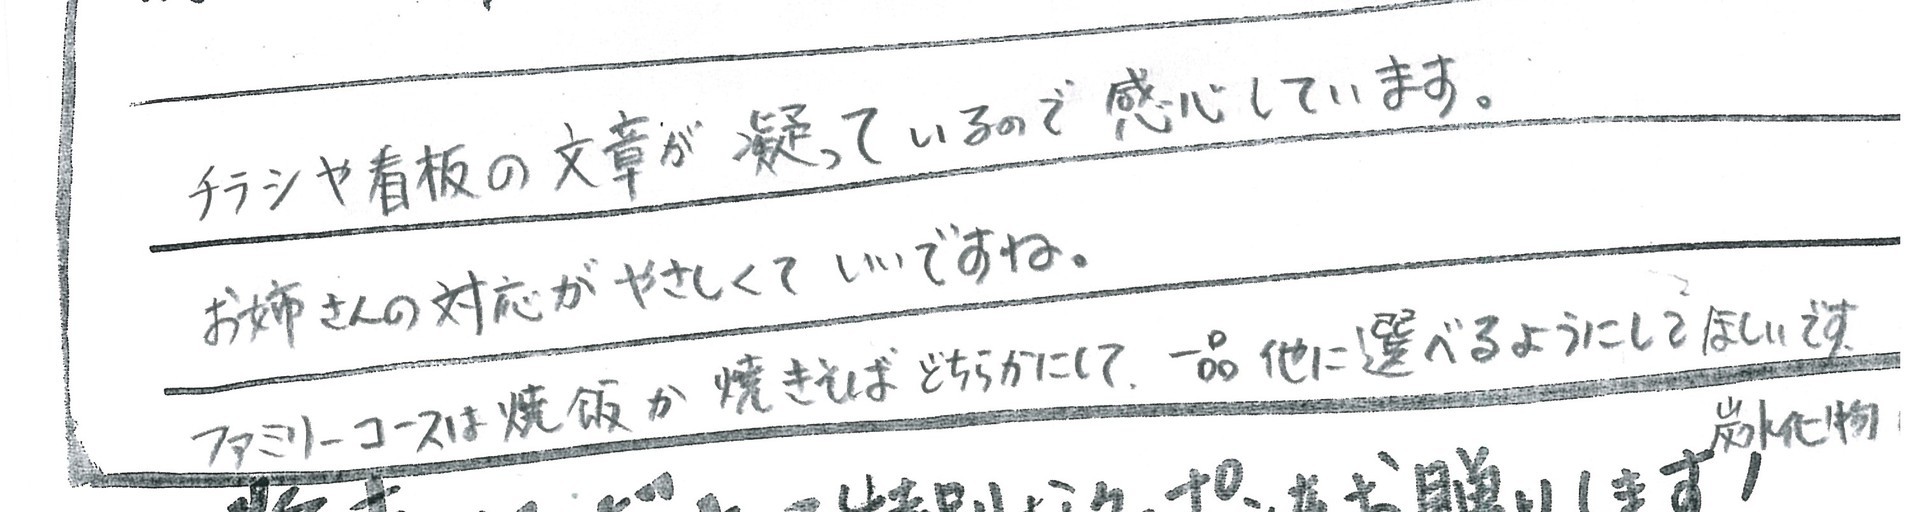 チラシや看板の文章が凝っているので感心しています。
お姉さんの対応がやさしくていいですね。
ファミリーコースは焼飯か焼きそばどちらかにして、一品他に選べるようにしてほしいです
炭水化物
特別なクーポンをお贈りします!